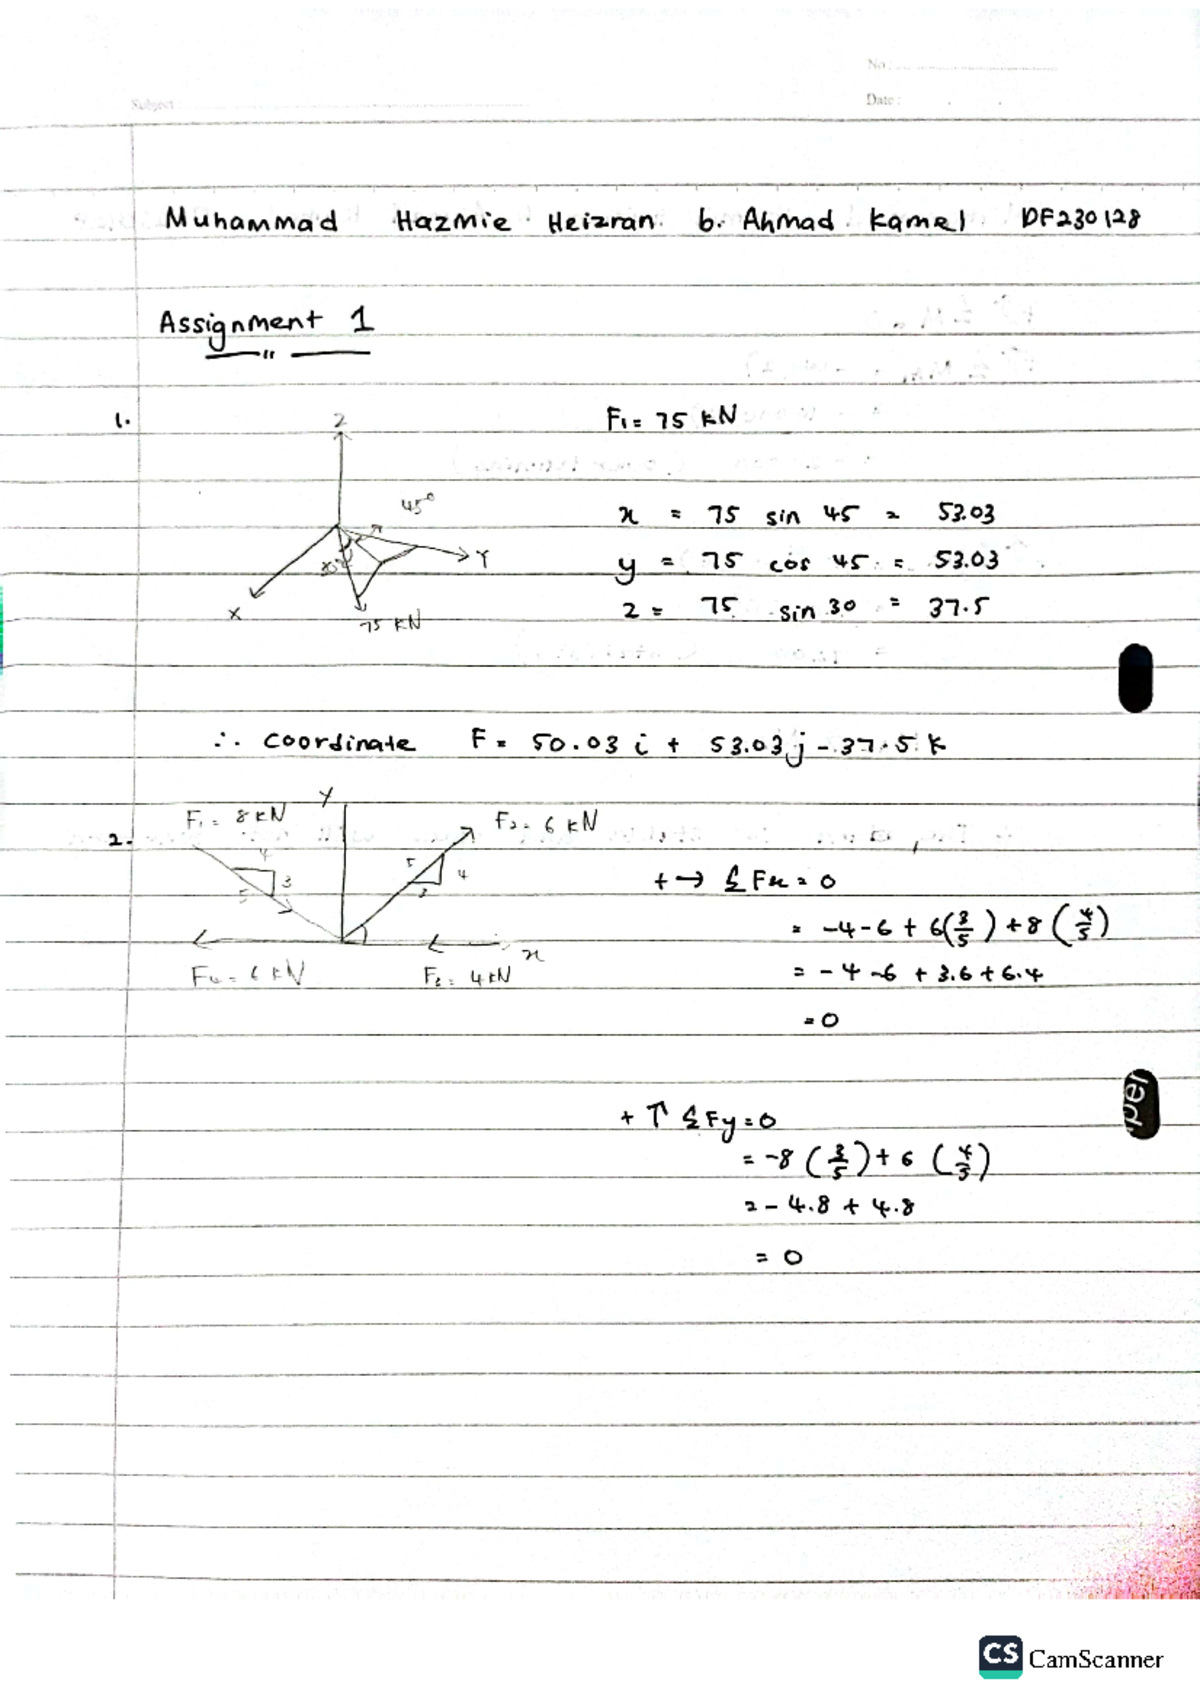 No :
Subject :
Date :
Muhammad Hazmie Heizran b. Ahmad Kamel DF230128
Assignment 1
1.
Z
F₁ = 75 kN
45°
x = 75 sin 45 = 53.03
Y
y = 75 cos 45 = 53.03
X
75 kN
z = 75 sin 30 = 37.5
∴ Coordinate F = 50.03 i + 53.03 j - 37.5 k
2.
Y
F₁ = 8 kN
F₂ = 6 kN
4
3
5
5
4
3
+ → ΣFx = 0
= -4-6 + 6(3/5) + 8(4/5)
x
F₄ = 6 kN
F₃ = 4 kN
= -4-6 + 3.6 + 6.4
= 0
+ ↑ ΣFy = 0
= -8 (3/5) + 6 (4/5)
= - 4.8 + 4.8
= 0
CS CamScanner